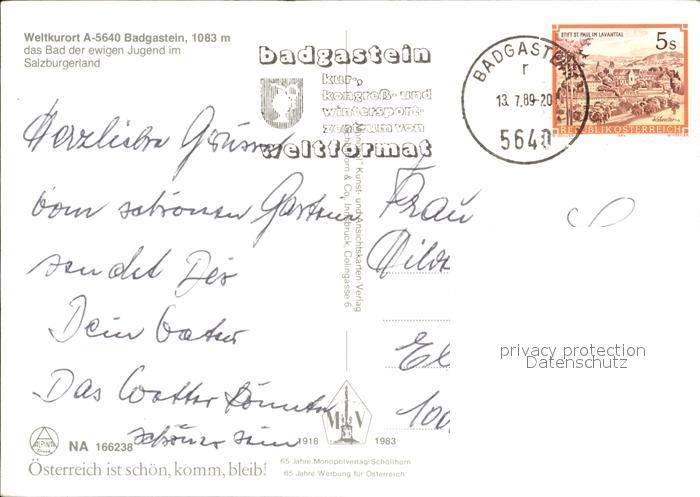 Weltkurort A-5640 Badgastein, 1083 m
das Bad der ewigen Jugend im
Salzburgerland
badgastein
kur-,
kongreß- und
wintersport-
zentrum von
weltformat
BADGASTEIN
r
13. 7.89-20
5640
STIFT ST. PAUL IM LAVANTTAL
5s
REPUBLIK ÖSTERREICH
Herzliche Grüsse
vom schönen Gastein
sendet Dir
Dein Vater
Das Wetter könnte
schöner sein
Kunst- und Ansichtskarten-Verlag
& Co, Innsbruck, Colingasse 6
Frau
Hilde
El
100
privacy protection
Datenschutz
ALPINA
NA 166238
M V
1918 1983
65 Jahre Monopolverlag Schöllhorn
65 Jahre Werbung für Österreich
Österreich ist schön, komm, bleib!